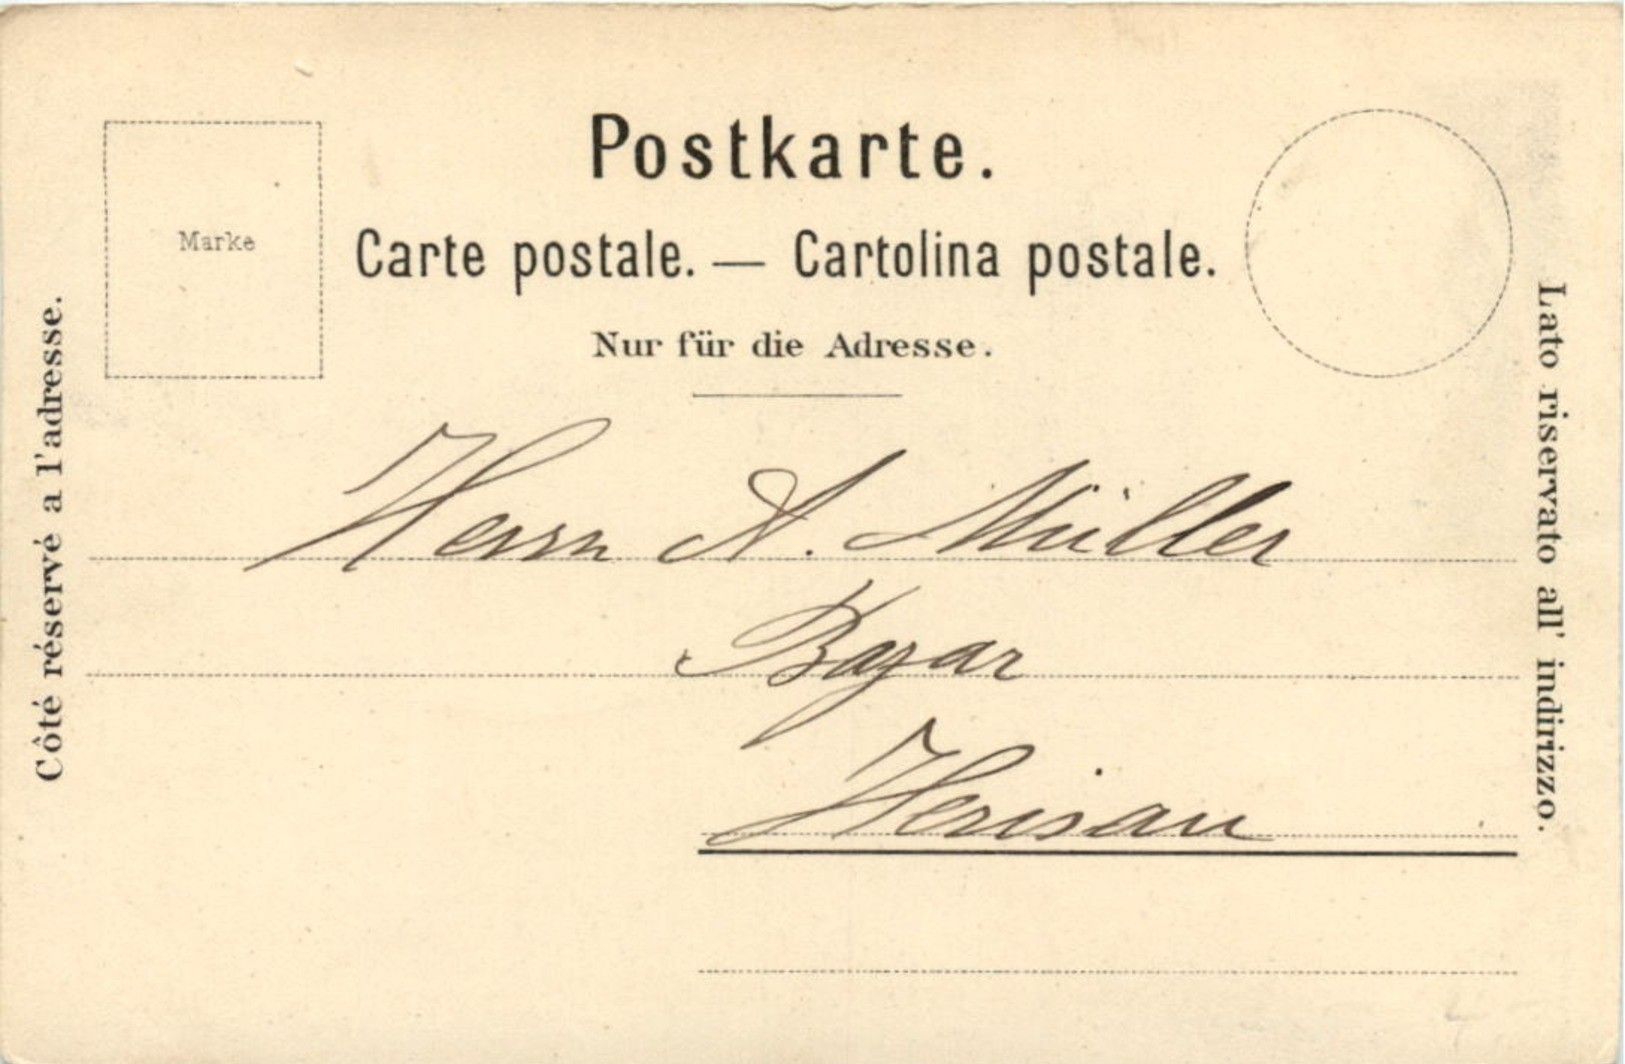 Postkarte.
Carte postale. — Cartolina postale.
Nur für die Adresse.
Marke
Côté réservé a l'adresse.
Lato riservato all' indirizzo.
Herrn A. Müller
Bazar
Herisau